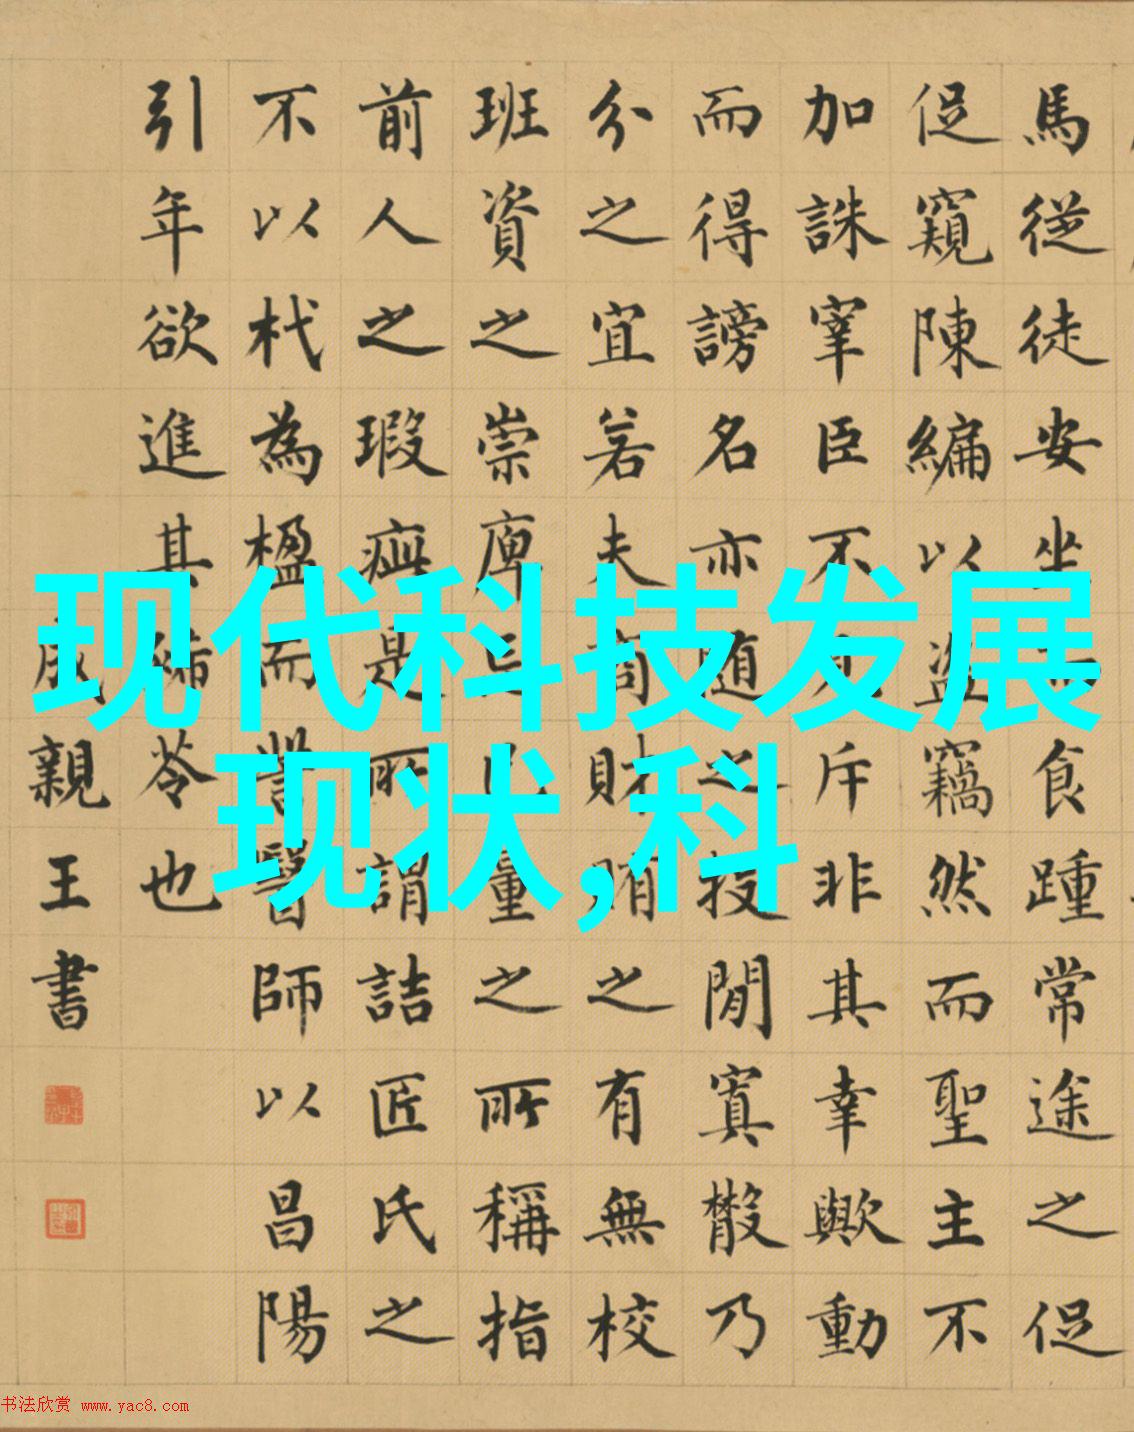 馬従徒安坐食踵常途之促
促窺陳編以盜竊然而聖主不
加誅宰臣不見斥非其幸歟動
而得謗名亦随之投閒寘散乃
分之宜若夫商財賄之有無校
班資之崇庳己量之所稱指
前人之瑕疵是所謂詰匠氏之
不以杙為楹而訾醫師以昌陽
引年欲進其豨苓也
成親王書
现代科技发展
现状,科
书法欣赏 www.yac8.com